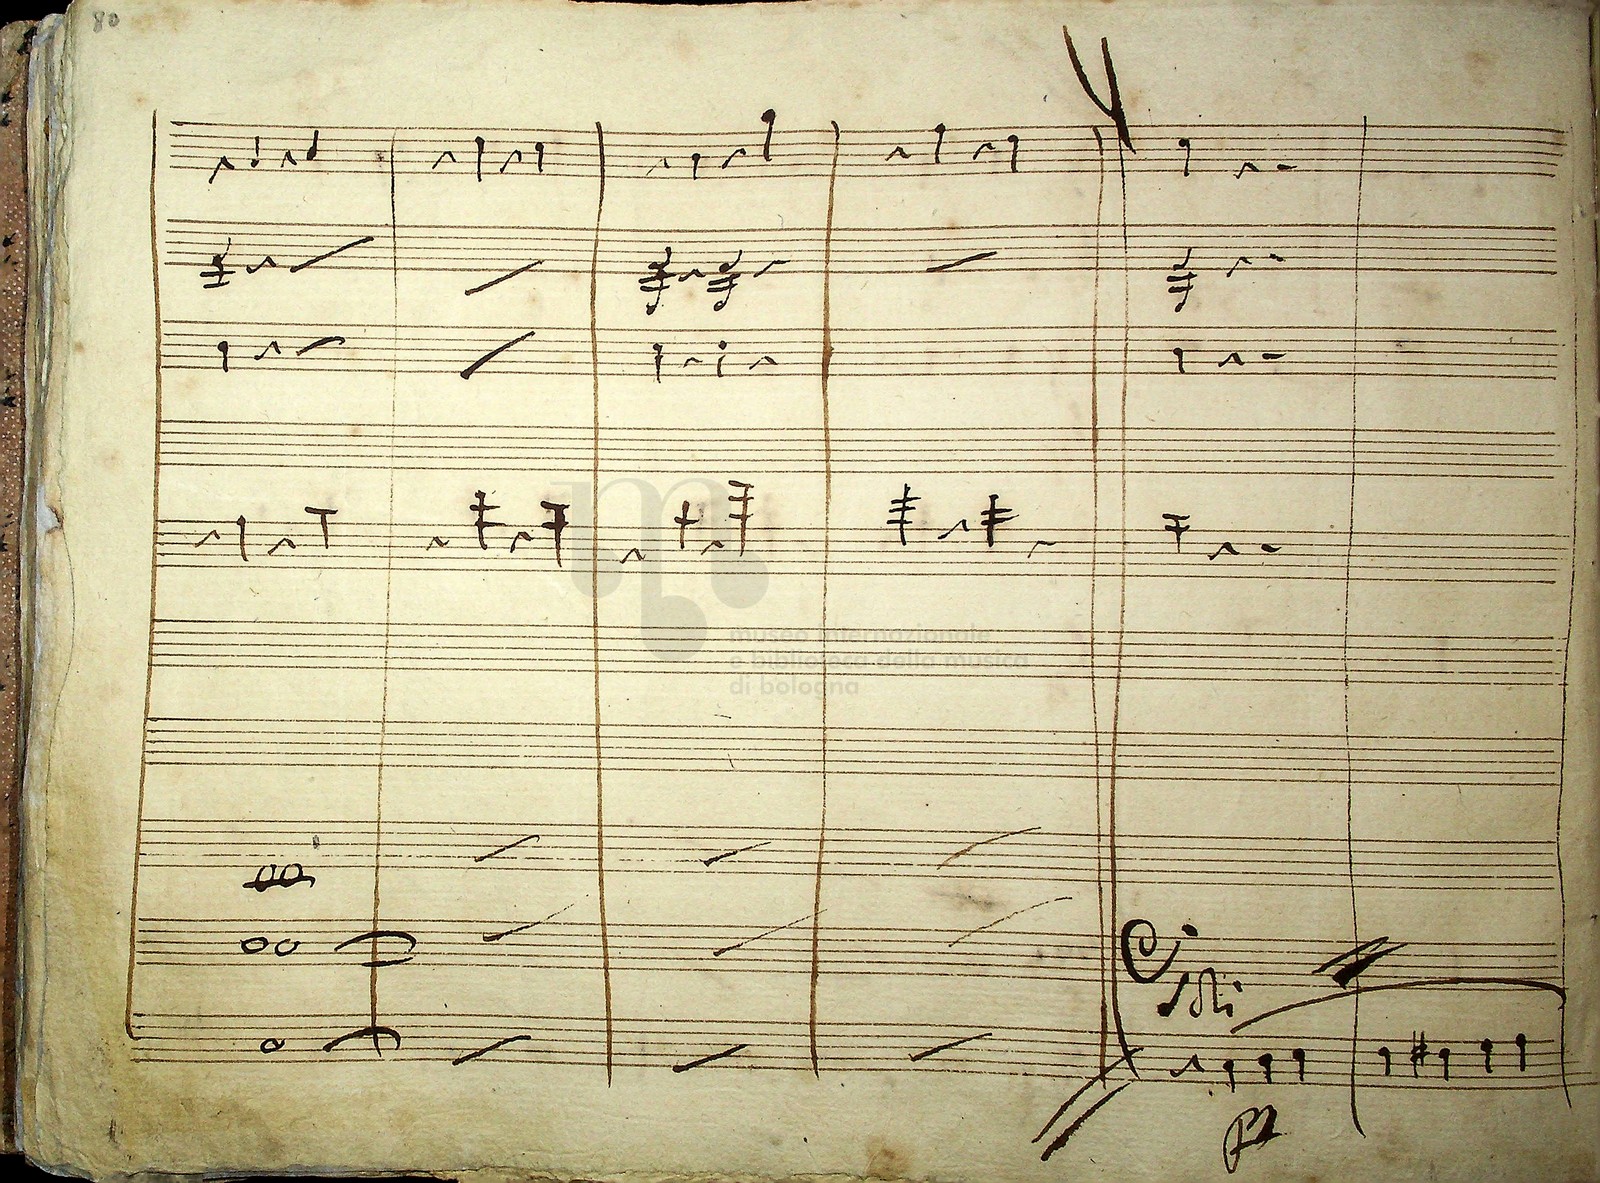 80
museo internazionale
e biblioteca della musica
di bologna
Soli